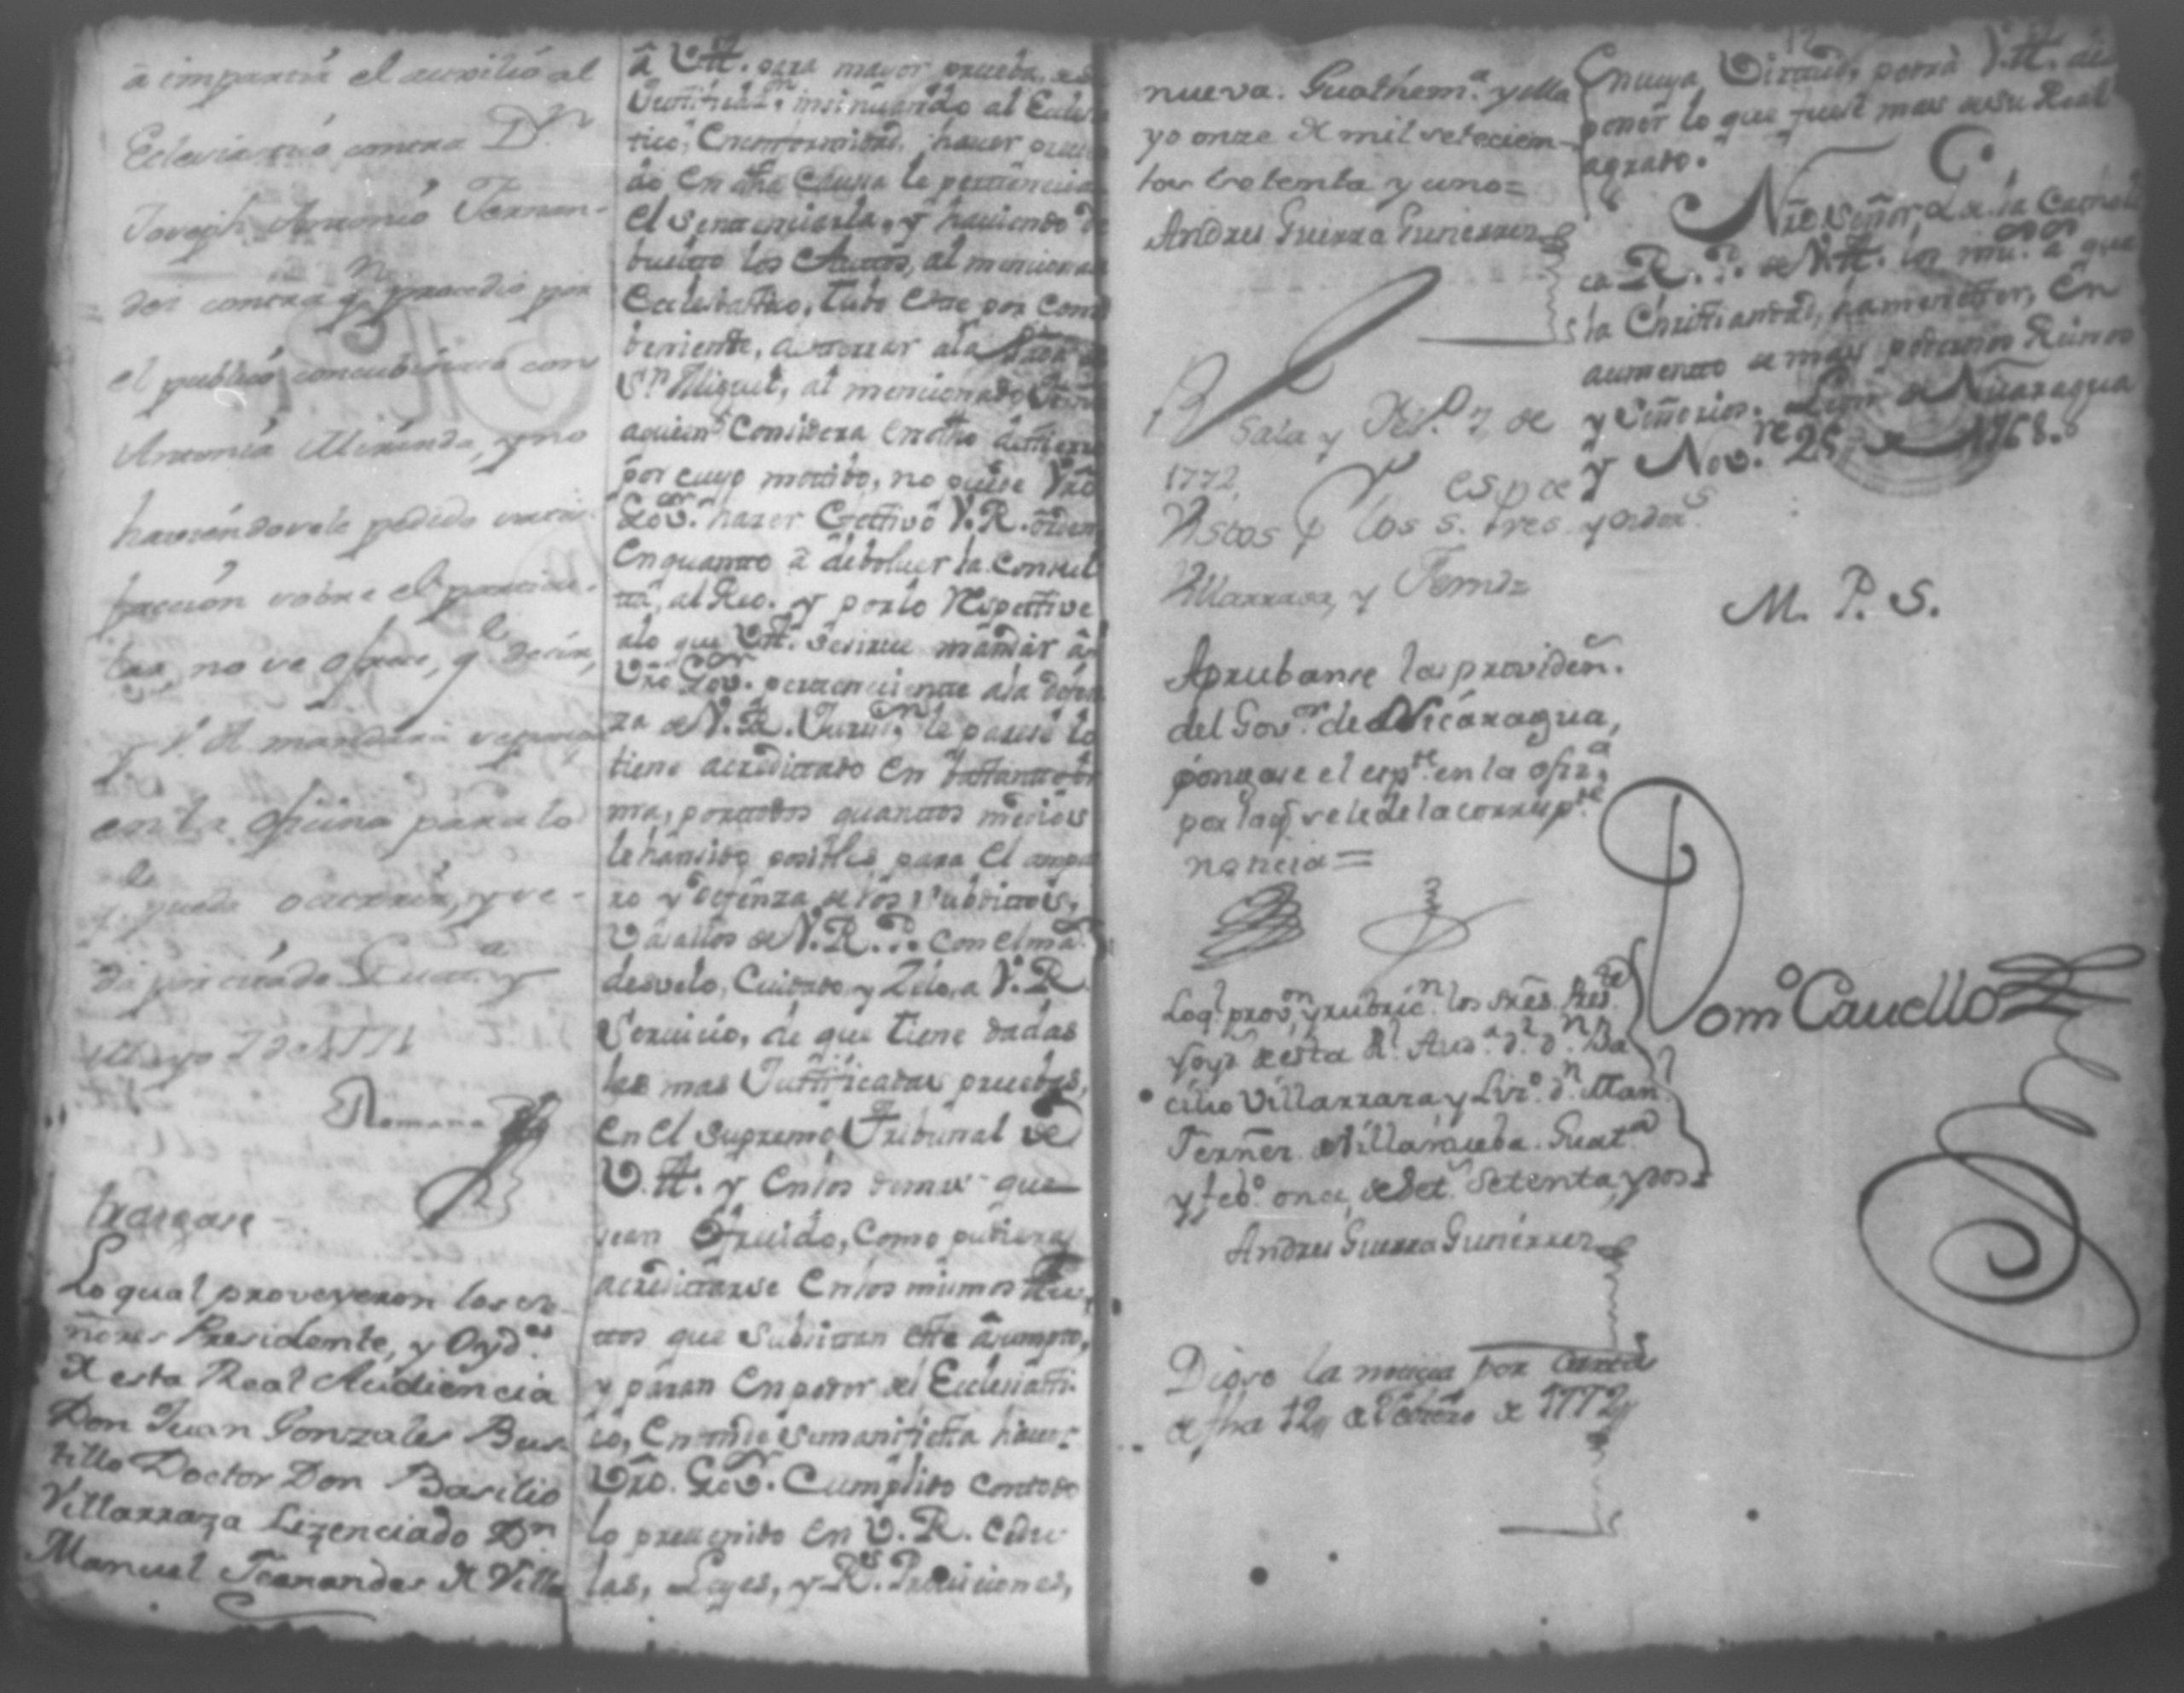 à impartir el auxilio al
Eclesiastico contra Dn.
Joseph Antonio Fernan-
dez contra qn. procedio por
el publico concubinato con
Antonia Miranda, y no
haciendosele pedido
sobre el particu-
lar, no se ofrece, qe decir,
y V. A. mandara se ponga
en la oficina para lo
qe pueda ocurrir, y se
Mayo 7 de 1771
Romana
traigase
Lo qual proveyeron los se-
ñores Presidente, y Oyds.
de esta Real Audiencia
Don Juan Gonzales Bus
tillo Doctor Don Basilio
Villarraza Lizenciado Dn
Manuel Fernandes de Villa
â V.A. para mayor prueba,
insinuando al Ecleso
tico, haver
do en dha Causa le pertenencia
el Sentenciarla, y haviendo de
buelto los Autos, al mencionado
Ecclesiastico, tubo este por com
beniente, a la
Sn. Miguel, al mencionado
aquien Considera en otro
por cuyo motibo, no puede Vro
Gov.or hazer Efectivo V. R. orden
en quanto â debolver la Consul
ta, al Reo. y por lo respective
alo que V.A. sesirve mandar â
Vro Gov.or perteneciente ala defen
za de V. R. Jurisn. le parese lo
tiene acreditado en bastante for
ma, portodos quantos medios
le hansido posibles para el ampa
ro y defenza de los Subditos,
Vasallos de V. R. P. con el mâ
desvelo, Cuidado y Zelo, a V. R.
Servicio, de que tiene dadas
las mas Justificadas pruebas,
en el supremo Tribunal de
V. A. y en los demas que
sean ofrecido, Como pudiera
acreditarse en los mismos Au
tos que Subsitan este asumpto,
y paran en poder del Eclesiasti
co, en donde semanifiesta haver
Vro. Gov.or Cumplido contodo
lo prevenido en V. R. Cedu
las, Leyes, y Rs. Provisiones,
nueva. Guathema. y Ma
yo onze de mil setecien-
tos setenta y uno=
Andres Guerra Gutierrez
Sala y Feb.o 7 de
1772
Vistos p los s. Pres. y oidors
Villarrasa, y Ferndz
Aprubanse las providen.
del Gov.or de Nicaragua,
pongase el esp.te en la ofiz.a
por la q se le de la corresp.te
noticia=
Loql. provn. y rubricn. los sres. Prese
y oyd de esta Rl. Auda. dr. dn. Ba
cilio Villarraza y Liz.o dn. Man.l
Fernz de Villanueba. Guat.a
y feb.o once, de Set. Setenta, y dos=
Andres Guerra Gutierrez
Diose la noticia por Carta
de fha 12 de Febrero de 1772
12
Encuya Virtud, podrâ V. A. dis
poner lo que fuese mas desu Real
agrado.
Nro Señor, Gde. la Catholi
ca R. P. de V. A. los ms. as que
la Christiandad, hamenester, en
aumento de mas poderosos Reinos
y Señorios. Leon de Nicaragua
y Nov.re 25 de 1768.
M. P. S.
Domo Cavello